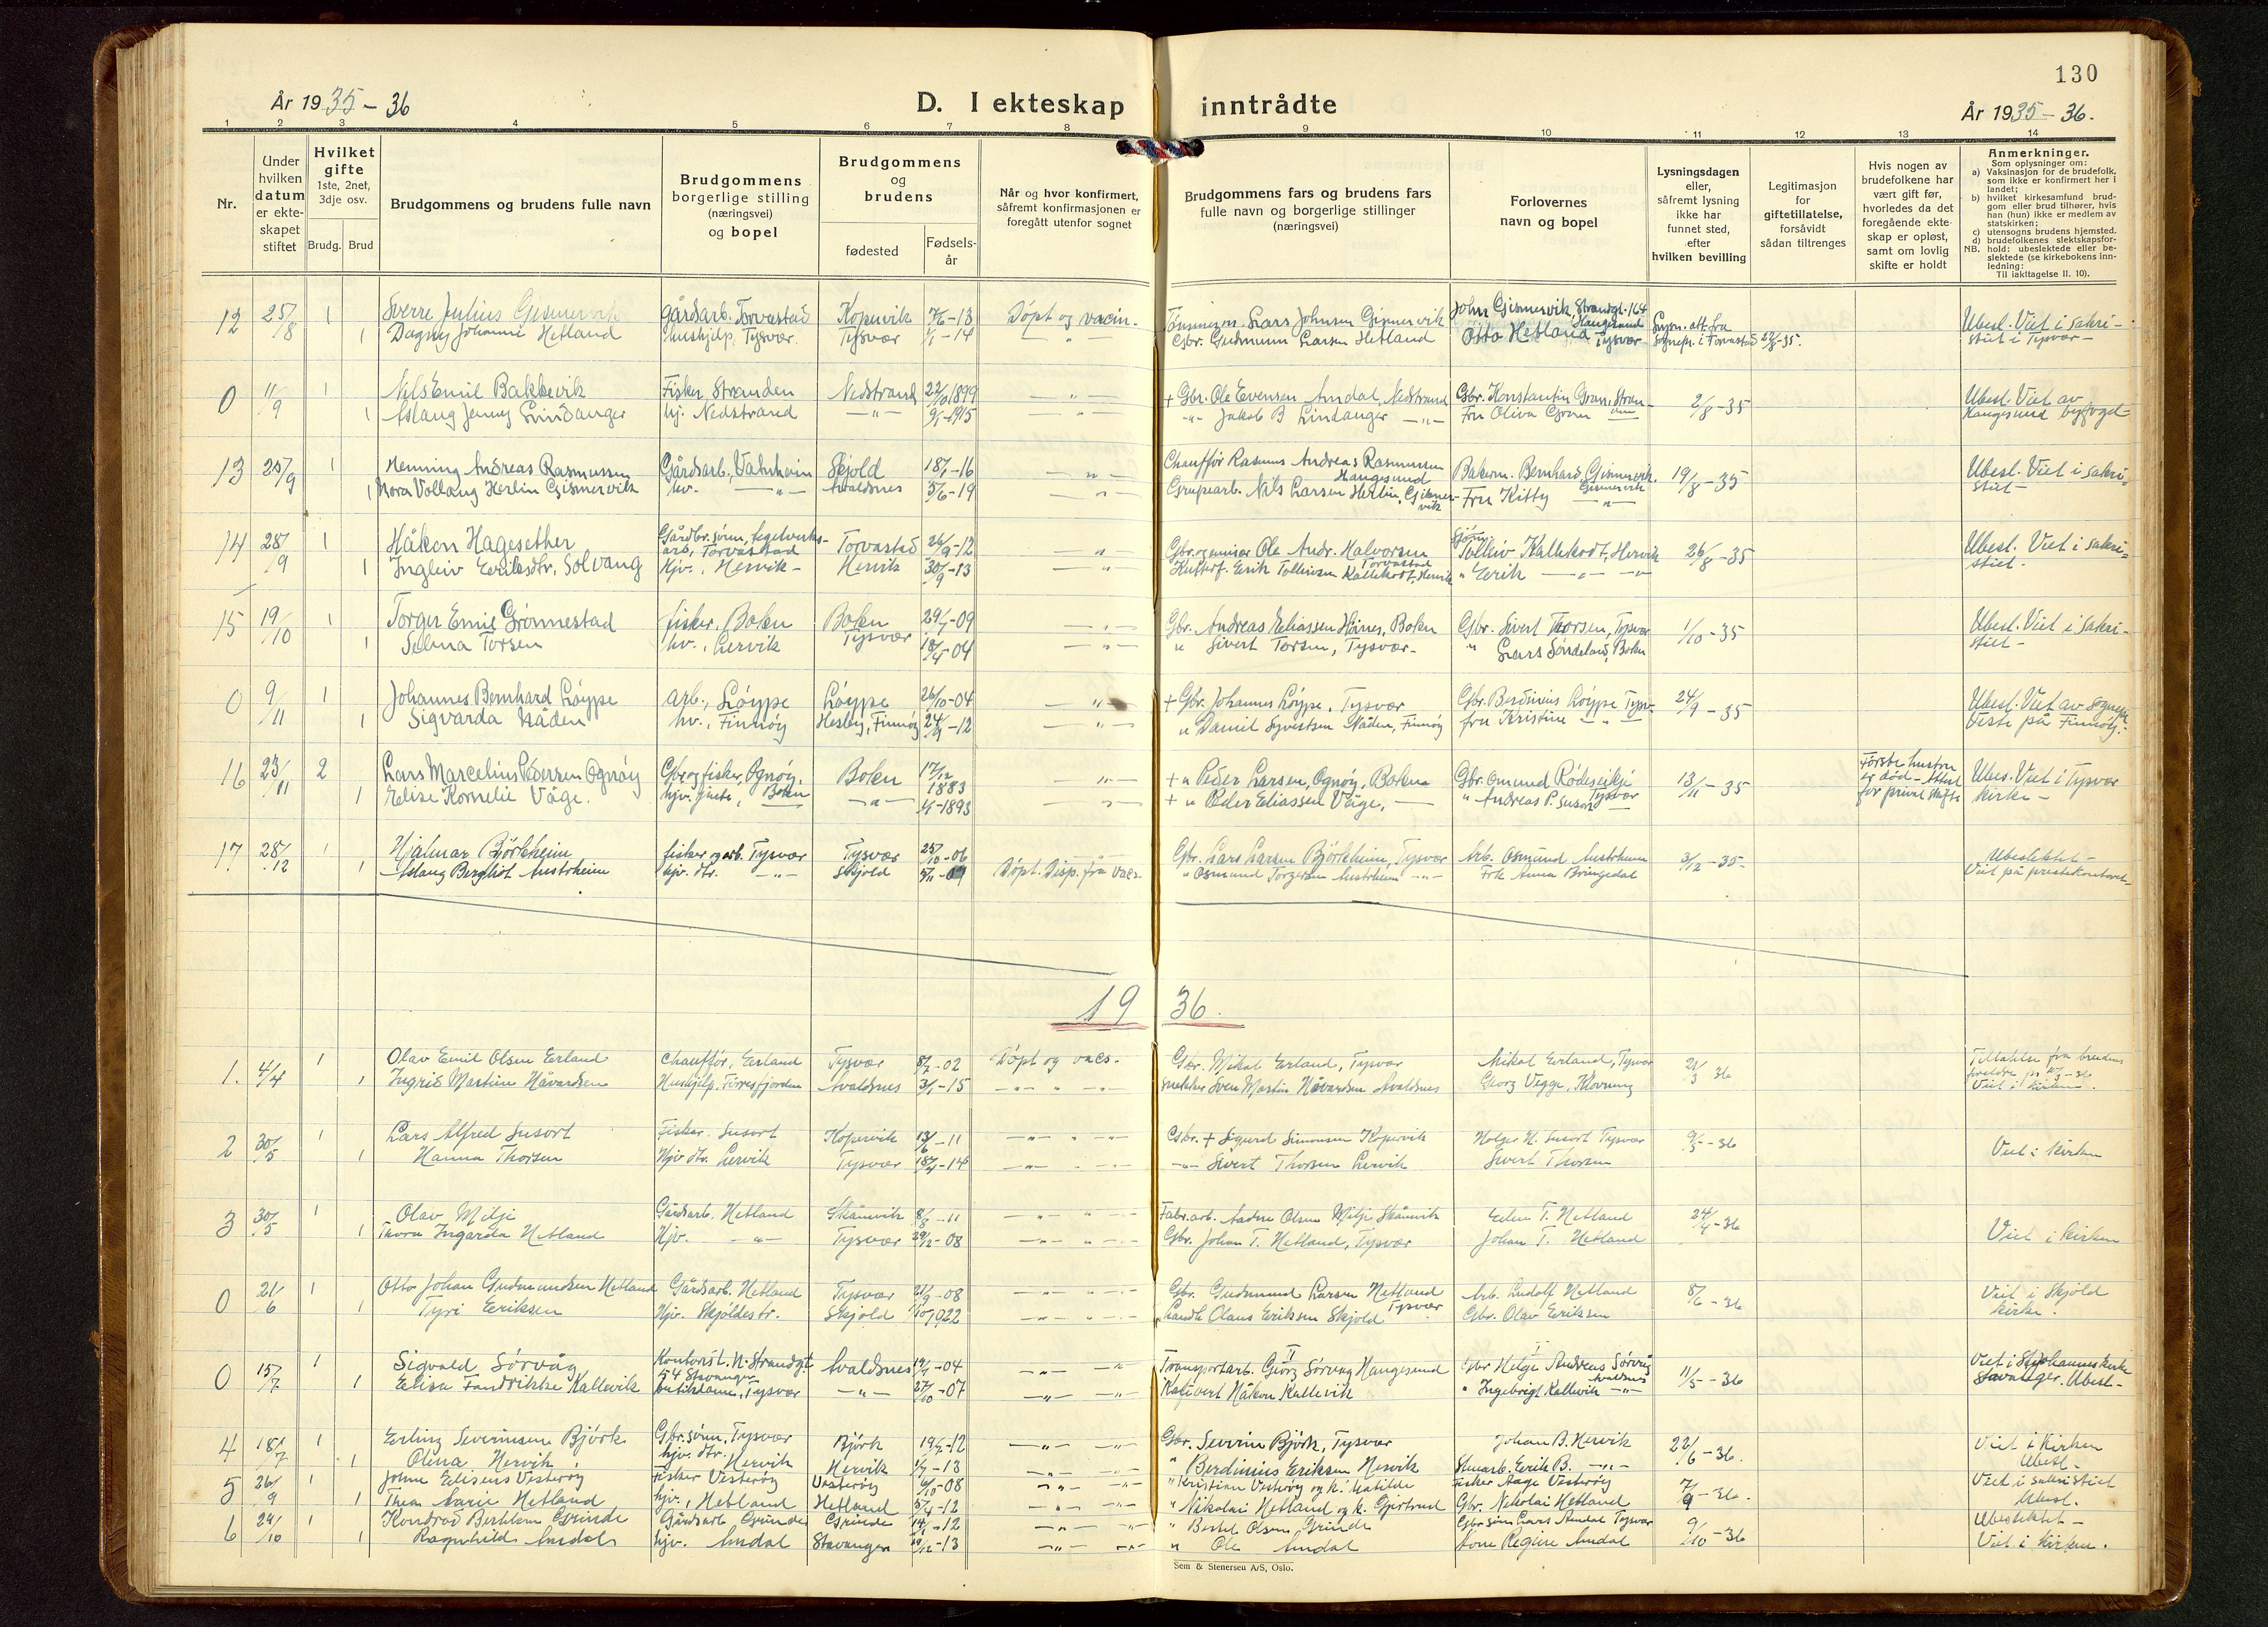 130
År 1935 - 36
D. I ekteskap inntrådte
År 1935 - 36.
1 2 3 4 5 6 7 8 9 10 11 12 13 14
Nr.
Under hvilken datum er ekteskapet stiftet
Hvilket gifte
1ste, 2net, 3dje osv.
Brudg. Brud
Brudgommens og brudens fulle navn
Brudgommens borgerlige stilling (næringsvei) og bopel
Brudgommens og brudens
fødested
Fødsels-år
Når og hvor konfirmert, såfremt konfirmasjonen er foregått utenfor sognet
Brudgommens fars og brudens fars
fulle navn og borgerlige stillinger
(næringsvei)
Forlovernes navn og bopel
Lysningsdagen eller, såfremt lysning ikke har funnet sted, efter hvilken bevilling
Legitimasjon for giftetillatelse, forsåvidt sådan tiltrenges
Hvis nogen av brudefolkene har vært gift før, hvorledes da det foregående ekteskap er opløst, samt om lovlig skifte er holdt
Anmerkninger.
Som oplysninger om:
a) Vaksinasjon for de brudefolk, som ikke er konfirmert her i landet;
b) hvilket kirkesamfund brudgom eller brud tilhører, hvis han (hun) ikke er medlem av statskirken;
c) utensogns brudens hjemsted.
d) brudefolkenes slektskapsforhold: ubeslektede eller beslektede (se kirkebokens innledning:
NB. Til iakttagelse II. 10).
12 25/8 1 Sverre Julius Gismervik Gårdsarb. Torvastad Kopervik -13 Døpt og vacin. Lars Johnsen Gismervik John Gismervik, Strandgt. 164 Haugesund Lysn. att. fra Ubesl. Viet i sakri-
1 Dagny Johanne Hetland hushjelp. Tysvær. Tysvær 1/1 -14 - " - Gbr. Gudmunn Larsen Hetland Otto Hetland Tysvær sognepr. i Torvastad 22/8-35. stiet i Tysvær -
0 11/9 1 Nils Emil Bakkevik Fisker, Stranden Nedstrand 22/10 1899 - " - + Gbr. Ole Evensen Amdal, Nedstrand Gbr. Konstantin Gram, Stranden 2/8 -35 Ubesl. Viet av
1 Aslaug Jenny Lindanger hj. Nedstrand - " - 9/1 -1915 - " - - " - Jakob B Lindanger - " - Fru Oliva Gram Haugesund byfoget -
13 25/9 1 Henning Andreas Rasmussen Gårdsarb., Vatnheim Skjold 18/1 -16 - " - Chauffør Rasmus Andreas Rasmussen Haugesund Bakerm. Bernhard Gismervik. Gismervik 19/8 -35 Ubesl. Viet i sakri-
1 Nora Vollaug Herlin Gismervik hv. - " - Avaldsnes 5/6 -19 - " - Grubearb. Nils Larsen Herlin, Gismervik Fru Kitty - " - stiet -
14 28/9 1 Håkon Hagesether Gårdbr. sønn, arb, Torvastad Torvastad 26/9 -12 - " - Gbr. og Ole Andr. Halvorsen Torvastad Tolleiv Kallekodt, Hervik 26/8 -35 Ubesl. Viet i sakri-
1 Ingleiv Eriksdtr. Solvang Hjv., Hervik - Hervik 30/9 -13 - " - Erik Tolleivsen Kallekodt, Hervik " Erik - " - - " - stiet.
15 19/10 1 Torger Emil Grønnestad fisker, Bokn Bokn 29/1 -09 - " - Gbr. Andreas Eliassen Høines, Bokn Gbr. Sivert Thorsen, Tysvær 1/10 -35 Ubesl. Viet i sakri-
1 Selma Torsen hv., Lervik Tysvær 18/4 -04 - " - " Sivert Torsen, Tysvær - " Lars Søndeland, Bokn stiet -
0 9/11 1 Johannes Bernhard Løype arb., Løype Løype 26/10 -04 - " - + Gbr. Johannes Løype, Tysvær Gbr. Berdinius Løype Tysv. 24/9 -35 Ubesl. Viet av sognepr.
1 Sigvarda Nåden hv., Finnøy Hesby, Finnøy 24/9 -12 - " - " Daniel Syvertsen Nåden, Finnøy fru Kristine - " - Veste på Finnøy.
16 23/11 2 Lars Marcelius Pedersen Ognøy Gbr. og fisker, Ognøy, Bokn Bokn 17/12 1883 - " - + " Peder Larsen, Ognøy, Bokn Gbr. Omund Rødseikje Tysvær 13/11 -35 Første hustru er død - Attest for privat skifte Ubes. Viet i Tysvær
1 Elise Kornelie Våge. hjv. - " - -1893 - " - + " Peder Eliassen Våge, - " Andreas P. Susort kirke -
17 28/12 1 Hjalmar Bjørkheim fisker og arb. Tysvær Tysvær 25/10 -06 Gbr. Lars Larsen Bjørkheim, Tysvær Arb. Osmund Austrheim 3/12 -35 - Ubeslektet -
1 Aslaug Bergliot Austrheim hjv. dtr. - " - Skjold 5/11 -09 Døpt. Disp. fra vacs. " Osmund Torgersen Austrheim - " - Frk Anna Bringedal Viet på prestekontoret -
19 36.
1. 4/4 1 Olav Emil Olsen Erland Chauffør, Erland Tysvær 8/7 -02 Døpt og vacs. Gbr. Mikal Erland, Tysvær Mikal Erland, Tysvær 21/3 36 Tillatelse fra brudens foreldre
1 Ingrid Martine Håvardsen Hushjelp, Førresfjorden Avaldsnes 3/1 -15 - " - " - " - snekker Sven Martin Håvardsen Avaldsnes Georg Vegge, Klovning Viet i kirken.
2 30/5 1 Lars Alfred Susort Fisker. Susort Kopervik 13/6 -11 - " - " - " - Gbr. + Sigurd Simonsen Kopervik Holger N. Susort Tysvær 9/5 -36 Viet i kirken
1 Hanna Thorsen Hjv dtr. Lervik Tysvær 18/4 -14 - " - " - " - - " - Sivert Thorsen Lervik Sivert Thorsen
3 30/5 1 Olav Milje Gårdsarb. Hetland Skånevik 8/8 -11 - " - " - " - Fabr. arb. Anders Olsen Milje Skånevik T. Hetland 24/4 -36 Viet i kirken
1 Thora Ingarda Hetland Hjv. - " - Tysvær 29/12 -08 - " - " - " - Gbr. Johan T. Hetland, Tysvær Johan T. Hetland
0 21/6 1 Otto Johan Gudmundsen Hetland Gårdsarb. Hetland Tysvær 21/9 -08 - " - " - " - Gbr. Gudmund Larsen Hetland Tysvær Arb. Ludolf Hetland 8/6 -36 Viet i Skjold
1 Tyri Eriksen Hjv. Skjoldestr. Skjold 1922 - " - " - " - Landh Olaus Eriksen Skjold Gbr. Olav Eriksen kirke.
0 15/7 1 Sigvald Sørvåg Kontorist. N. Strandgt 54 Stavanger Avaldsnes 19/1 -04 - " - - " - Transportarb. Georg Sørvaag Haugesund Gbr Helge Andreas Sørvåg Avaldsnes 11/5 -36 Viet i St Johannes kirke
1 Elisa Fredrikke Kallevik Butikkdame, Tysvær - " - 27/10 -07 - " - - " - Håkon Kallevik " Ingebrigt Kallevik - " - Stavanger. Ubesl -
4 18/7 1 Erling Severinsen Bjørk Gbr. sønn, Tysvær Bjørk 19/2 -12 - " - - " - Gbr. Severin Bjørk, Tysvær Johan B. Hervik 22/6 -36. Viet i Kirken
1 Olina Hervik hjv. dtr. Hervik Hervik -13 - " - - " - " Berdinius Eriksen Hervik Erik B. - " - Ubesl -
5 26/9 1 Johan Eliseus Vesterøy Fisker Vesterøy Vesterøy 6/10 -08 - " - - " - " Kristian Vesterøy og k. Matilde Fisker Aage Vesterøy 7/9 -36. Viet i sakristiet
1 Thea Marie Hetland hjv., Hetland Hetland 5/4 -12 - " - - " - " Nikolai Hetland og k. Gjertrud Gbr. Nikolai Hetland Ubesl.
6 24/10 1 Kondrad Berthin Grinde Gårdsarb Grinde Grinde -12 - " - - " - " Bertel Olsen Grinde Gbr sønn Lars Amdal Tysvær 9/10 -36 Ubeslektet -
1 Ragnhild Amdal hjv. Amdal Stavanger -13 - " - - " - " Ole Amdal Regine Amdal Viet i Kirken.
Sem & Stenersen A/S, Oslo.